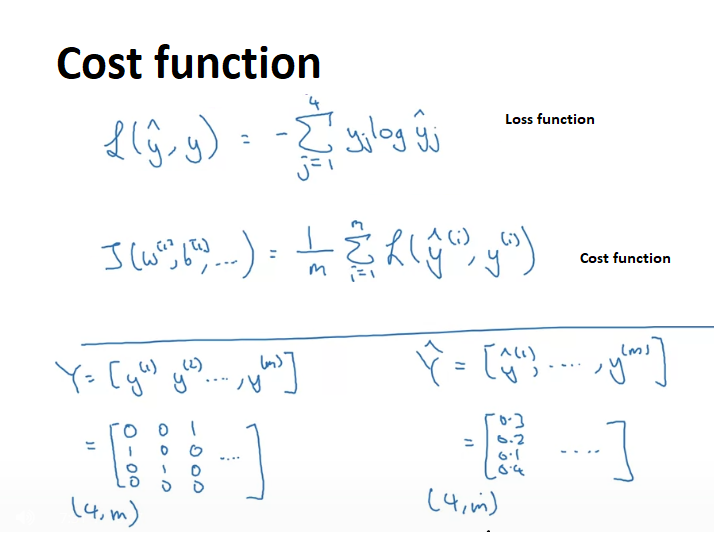 Cost function
ℒ(ŷ, y) = - ∑_{j=1}^{4} y_j log ŷ_j
Loss function
J(w^{[1]}, b^{[1]}, ...) = 1/m ∑_{i=1}^{m} ℒ(ŷ^{(i)}, y^{(i)})
Cost function
Y = [y^{(1)} y^{(2)} ...., y^{(m)}]
= [0 0 1
1 0 0 ....
0 1 0
0 0 0]
(4, m)
Ŷ = [ŷ^{(1)}, ...., y^{(m)}]
= [0.3
0.2
0.1 ....
0.4]
(4, m)